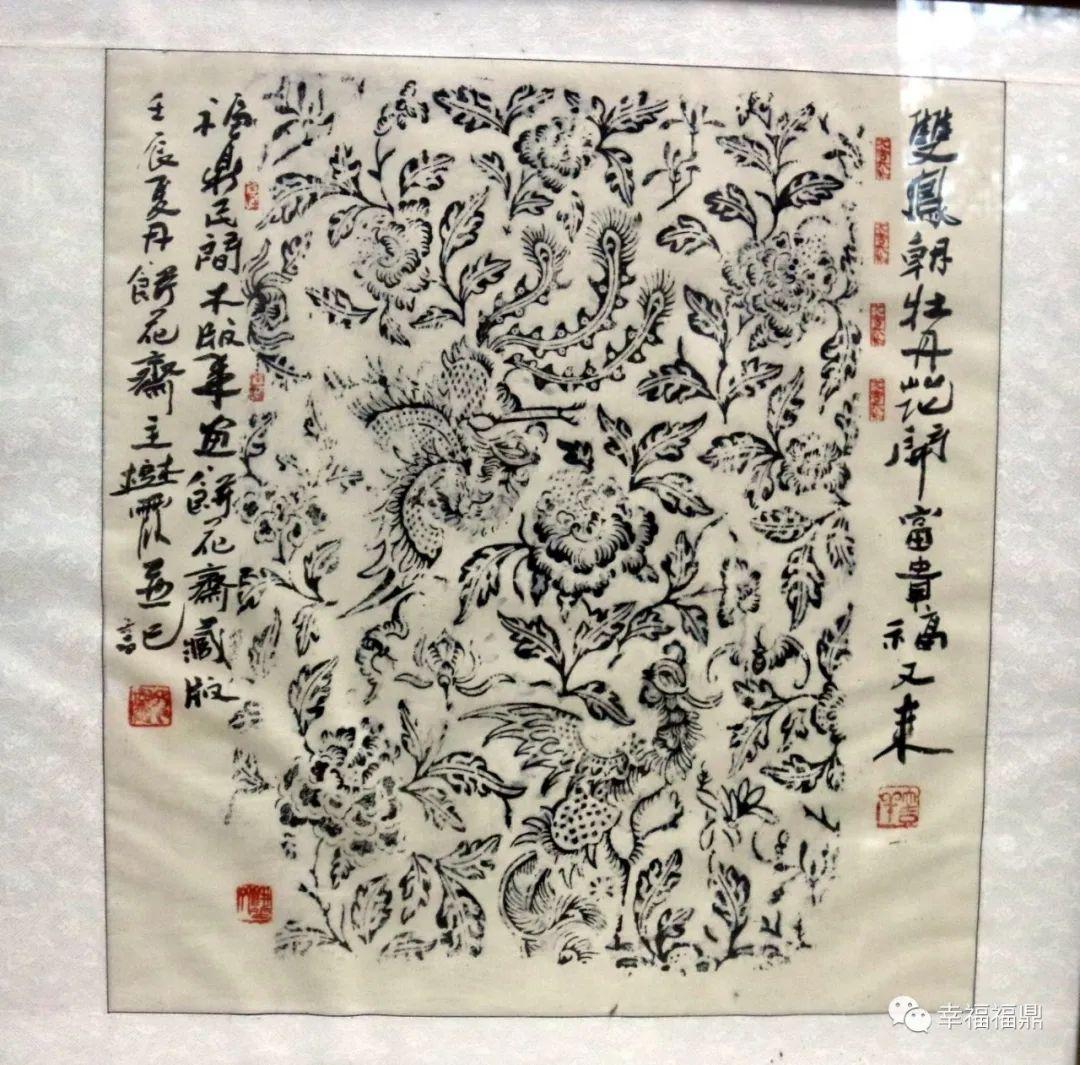 雙鳳朝牡丹花開富貴福又来
福鼎民間木版年画餅花齋藏版
壬辰夏月餅花齋主
并记
幸福福鼎